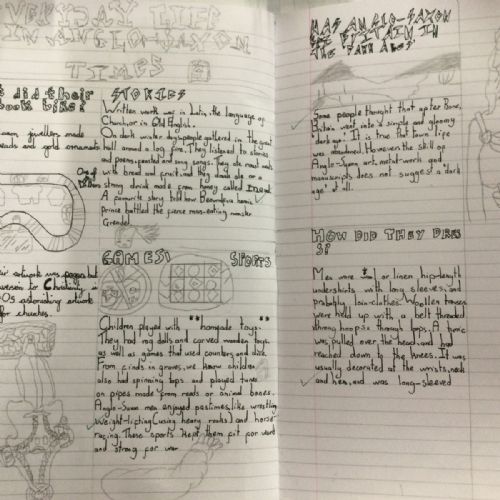 EVERYDAY LIFE
IN ANGLO-SAXON
TIMES
did their
look like?
jewellers made
beads and gold ornaments
artwork was pagan but
Christianity in
astonishing artwork
for churches.
STORIES
Written works are in Latin, the language of
Church, or in Old English.
On dark winter days people gathered in the great
hall around a log fire. They listened to stories
and poems, and sang songs. They ate
with bread and fruit, and they drank ale or a
strong drink made from honey called
A favourite story told how Beowulf, a heroic
prince battled the fierce man-eating monster
Grendel.
GAMES/
SPORTS
Children played with homemade toys.
They had rag dolls and carved wooden toys,
as well as games that used counters and dice.
From finds in graves, we know children
also had spinning tops and played tunes
on pipes made from reeds or animal bones.
Anglo-Saxon men enjoyed pastimes like wrestling
Weight-lifting (using heavy rocks) and horse-
racing. These sports kept them fit for work
and strong for war.
WAS ANGLO-SAXON
BRITAIN IN
THE DARK AGES?
Some people thought that after Rome,
Britain went into a simple and gloomy
'dark age'. It is true that town life
was abandoned. However the skill of
Anglo-Saxon art, metal-work and
manuscripts does not suggest a 'dark
age' at all.
HOW DID THEY DRES
S?
Men wore or linen hip-length
undershirts with long sleeves, and
probably loin-clothes. Woollen trousers
were held up with a belt threaded
through loops. A tunic
was pulled over the head, and
reached down to the knees. It was
usually decorated at the wrists, neck
and hem, and was long-sleeved